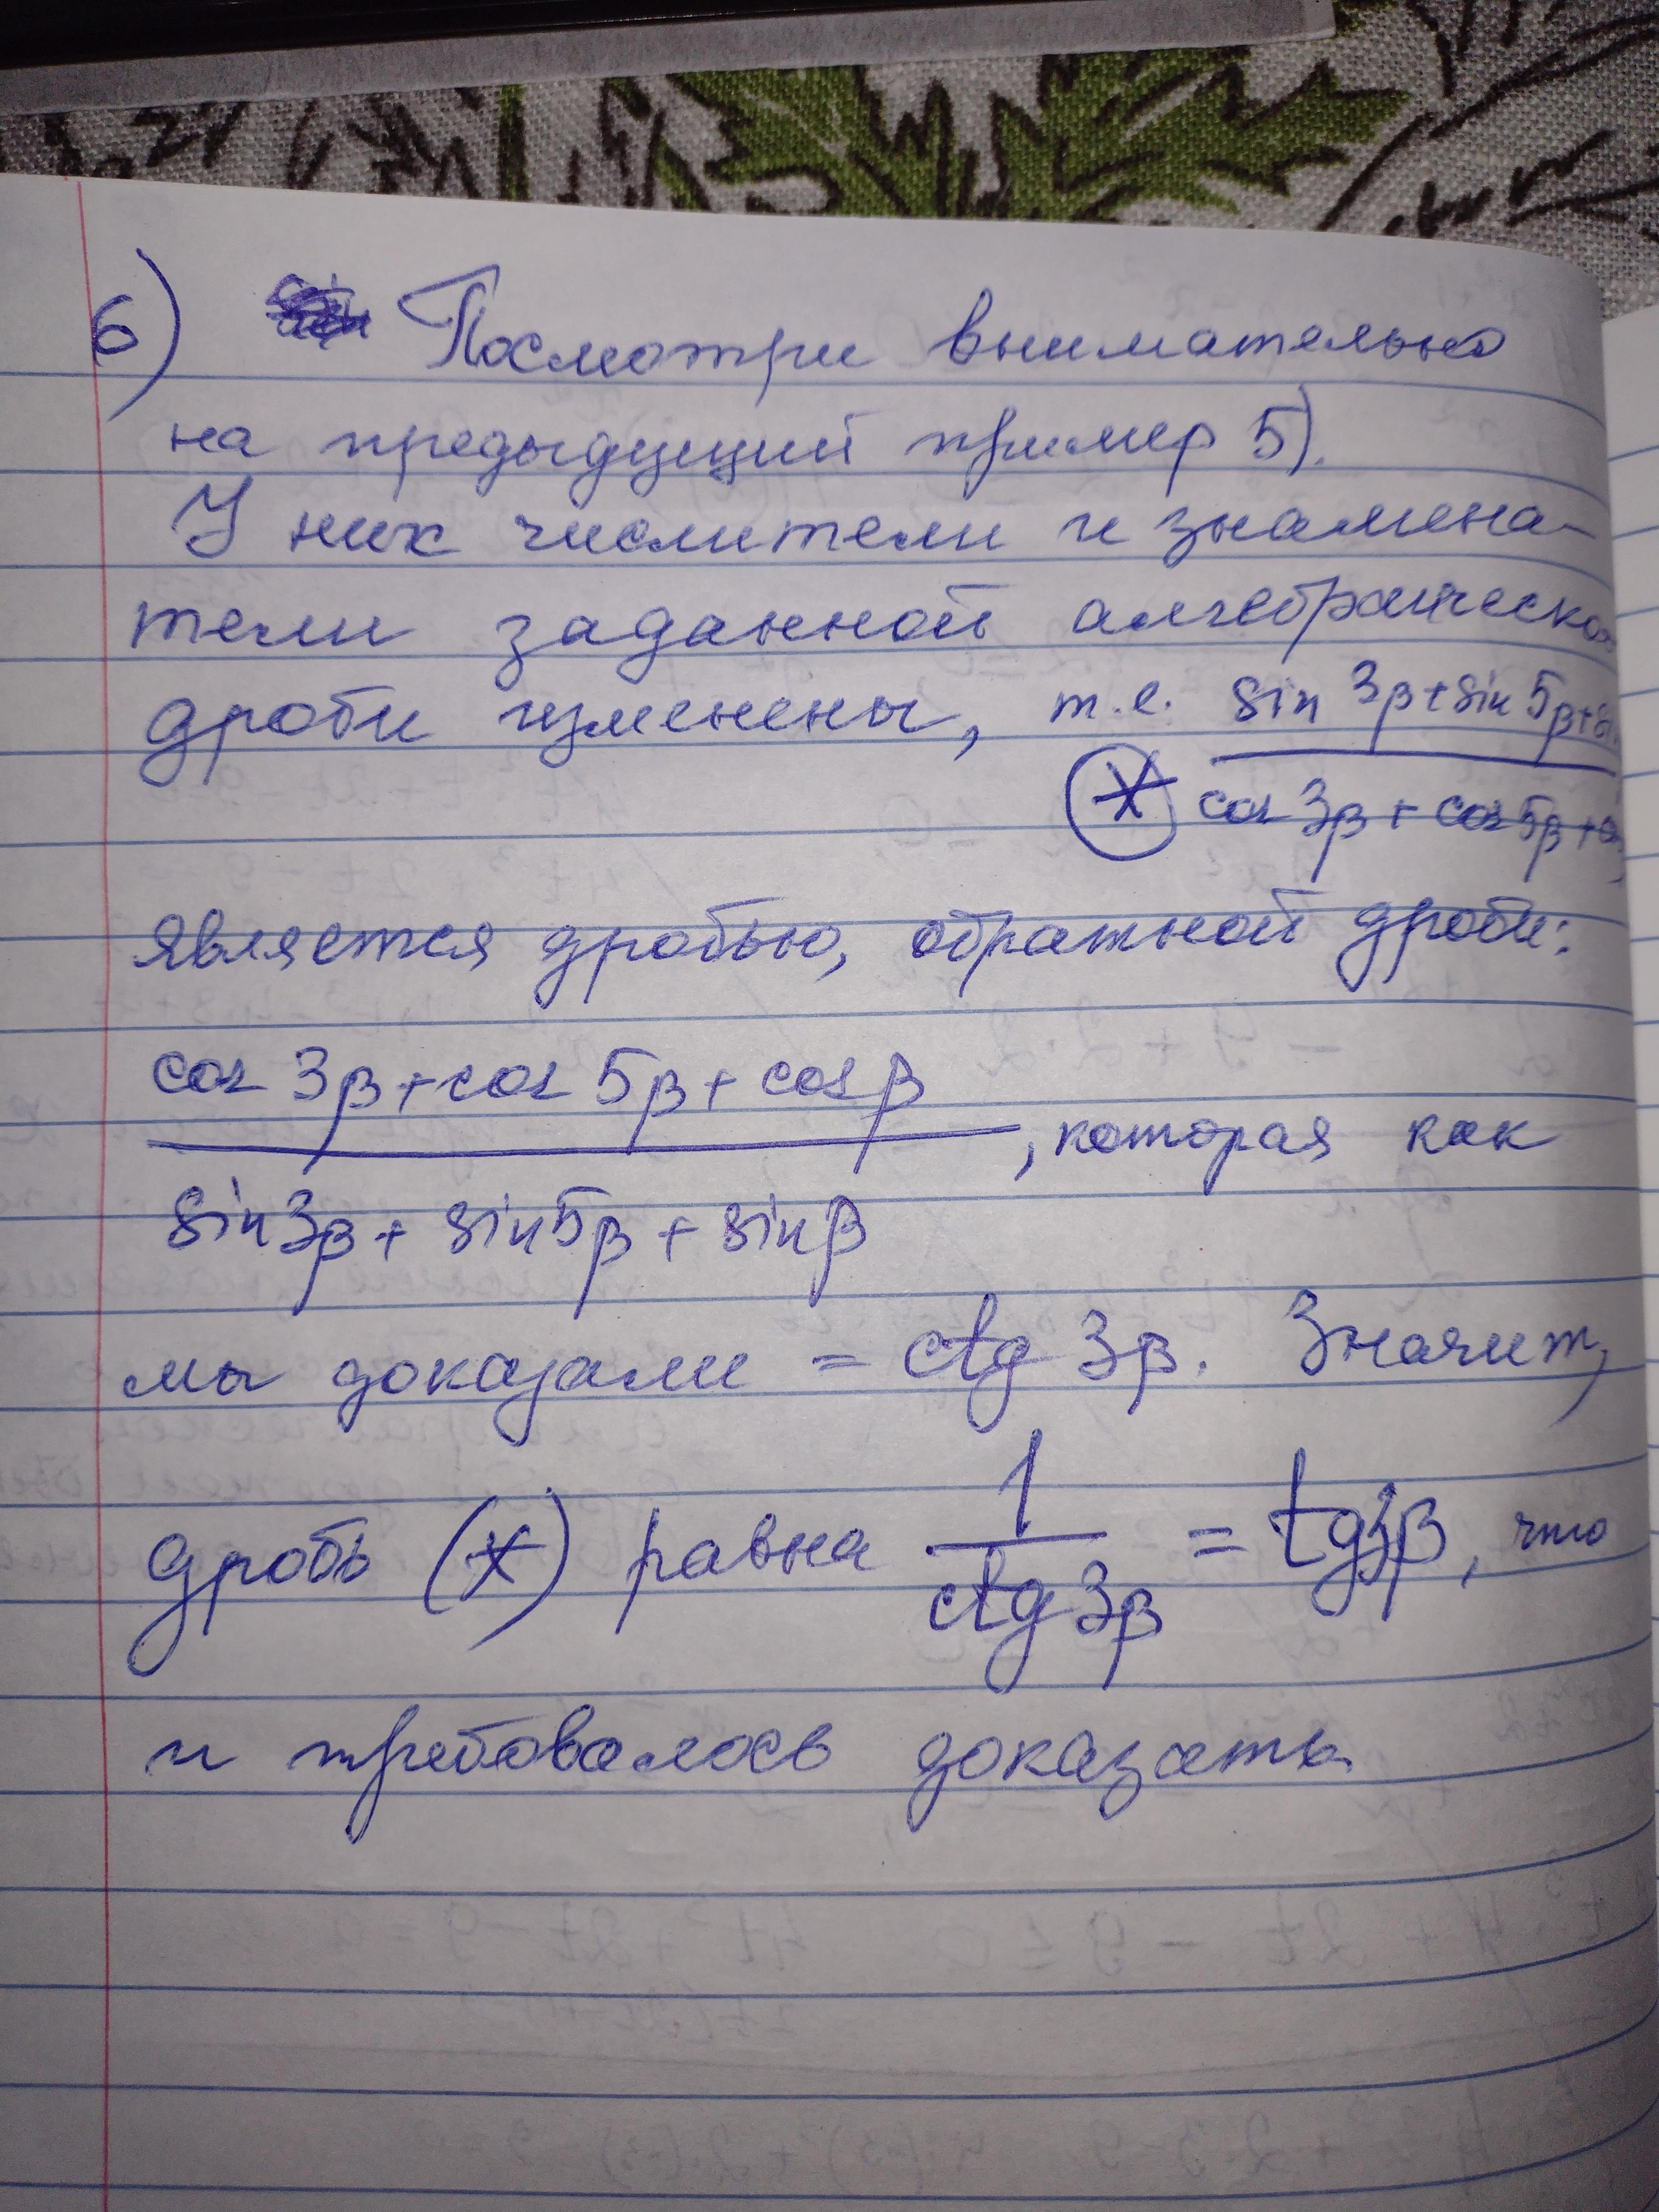 6) Посмотри внимательно
на предыдущий пример 5).
У них числители и знамена-
тели заданной алгебраическо
дроби изменены, т.е. sin 3β + sin 5β + si
(*) cos 3β + cos 5β + c
является дробью, обратной дроби:
cos 3β + cos 5β + cos β
, которая как
sin 3β + sin 5β + sin β
мы доказали = ctg 3β. Значит,
дробь (*) равна 1/ctg 3β = tg 3β, что
и требовалось доказать